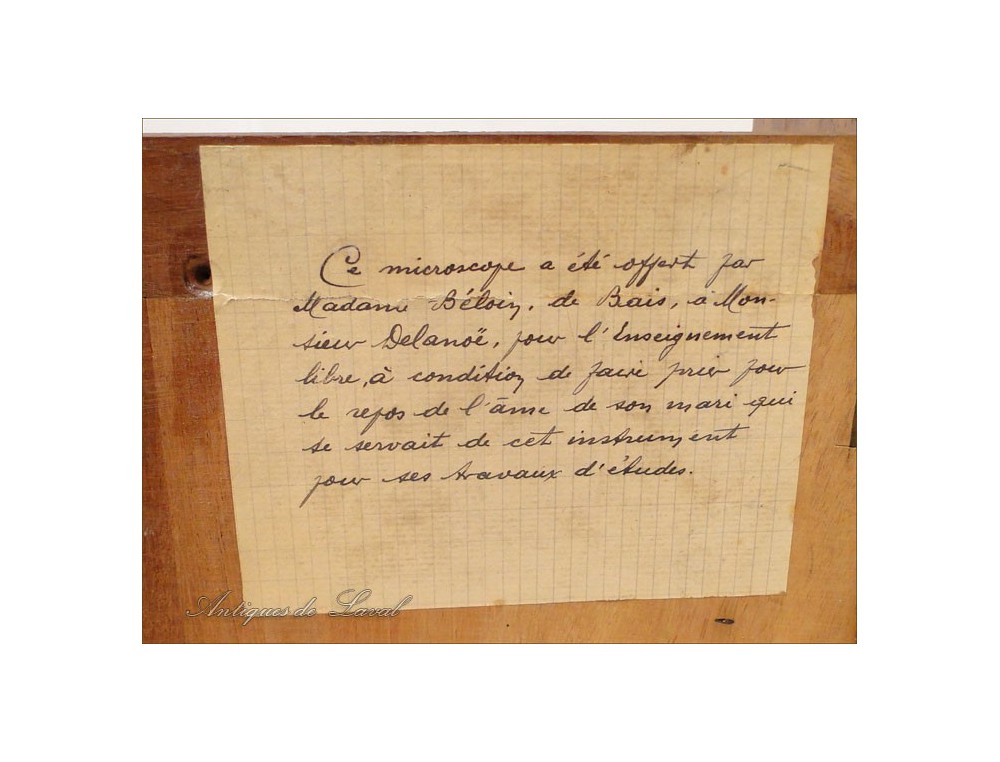 Ce microscope a été offert par
Madame Béloin, de Bais, à Mon-
sieur Delanoë, pour l'Enseignement
libre, à condition de faire prier pour
le repos de l'âme de son mari qui
se servait de cet instrument
pour ses travaux d'études.
Antiques de Laval